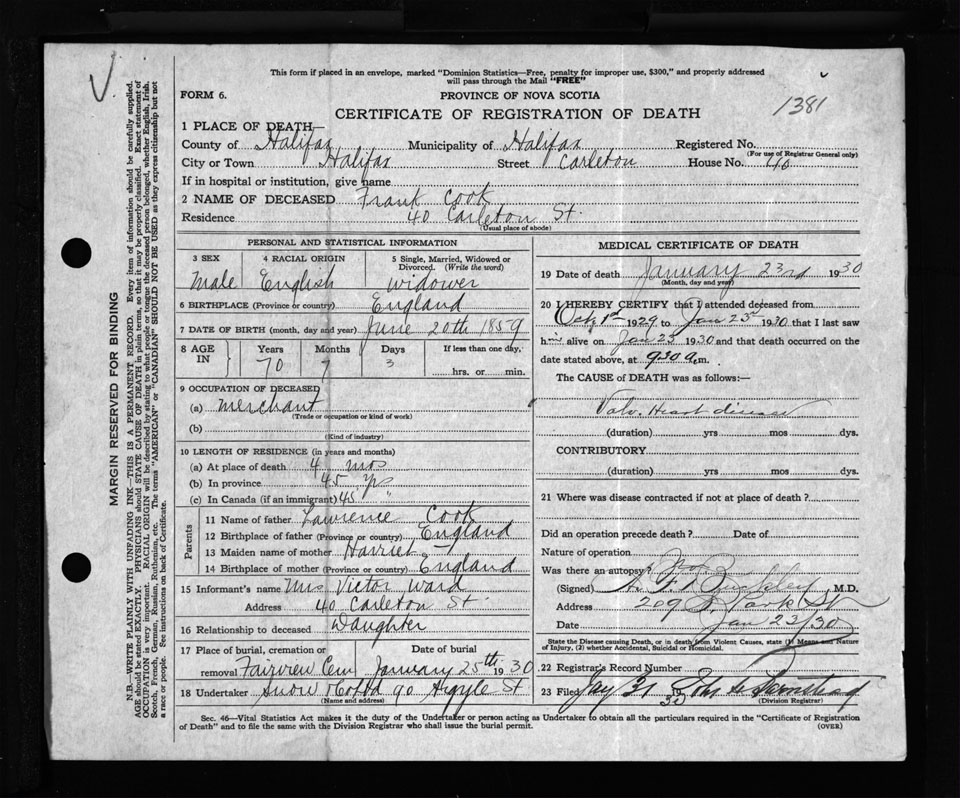 V.
This form if placed in an envelope, marked "Dominion Statistics—Free, penalty for improper use, $300," and properly addressed
will pass through the Mail "FREE"
FORM 6.
PROVINCE OF NOVA SCOTIA
1381
CERTIFICATE OF REGISTRATION OF DEATH
1 PLACE OF DEATH—
County of Halifax Municipality of Halifax Registered No.
(For use of Registrar General only)
City or Town Halifax Street Carleton House No. 40
If in hospital or institution, give name
2 NAME OF DECEASED Frank Cook
Residence 40 Carleton St.
(Usual place of abode)
PERSONAL AND STATISTICAL INFORMATION
3 SEX 4 RACIAL ORIGIN 5 Single, Married, Widowed or
Divorced. (Write the word)
Male English Widower
6 BIRTHPLACE (Province or country) England
7 DATE OF BIRTH (month, day and year) June 20th 1859
8 AGE IN Years Months Days If less than one day,
70 7 3 hrs. or min.
9 OCCUPATION OF DECEASED
(a) Merchant
(Trade or occupation or kind of work)
(b)
(Kind of industry)
10 LENGTH OF RESIDENCE (in years and months)
(a) At place of death 4 mos
(b) In province 45 yrs
(c) In Canada (if an immigrant) 45 "
Parents
11 Name of father Lawrence Cook
12 Birthplace of father (Province or country) England
13 Maiden name of mother Harriet —
14 Birthplace of mother (Province or country) England
15 Informant's name Mrs Victor Ward
Address 40 Carleton St.
16 Relationship to deceased Daughter
17 Place of burial, cremation or removal Date of burial
Fairview Cem January 25th 1930
18 Undertaker Snow & Co Ltd 90 Argyle St
(Name and address)
MEDICAL CERTIFICATE OF DEATH
19 Date of death January 23rd 1930
(Month, day and year)
20 I HEREBY CERTIFY that I attended deceased from
Oct 1st 1929 to Jan 23rd 1930 that I last saw
him alive on Jan 23 1930 and that death occurred on the
date stated above, at 9.30 a.m.
The CAUSE of DEATH was as follows:—
Valv. Heart disease
(duration) yrs mos dys.
CONTRIBUTORY
(duration) yrs mos dys.
21 Where was disease contracted if not at place of death?
Did an operation precede death? Date of
Nature of operation
Was there an autopsy? No.
(Signed) M.D.
Address 209 Park St
Date Jan 23/30
State the Disease causing Death, or in death from Violent Causes, state (1) Means and Nature
of Injury, (2) whether Accidental, Suicidal or Homicidal.
22 Registrar's Record Number
23 Filed 31 1930
(Division Registrar)
Sec. 46—Vital Statistics Act makes it the duty of the Undertaker or person acting as Undertaker to obtain all the particulars required in the "Certificate of Registration
of Death" and to file the same with the Division Registrar who shall issue the burial permit. (OVER)
MARGIN RESERVED FOR BINDING
N.B.—WRITE PLAINLY WITH UNFADING INK—THIS IS A PERMANENT RECORD. Every item of information should be carefully supplied.
AGE should be stated EXACTLY. PHYSICIANS should STATE CAUSE OF DEATH in plain terms, so that it may be properly classified. Exact statement of
OCCUPATION is very important. RACIAL ORIGIN will be described by stating to what people or tongue the deceased person belonged, whether English, Irish,
Scotch, French, German, Russian, Ruthenian, etc. The terms "AMERICAN" or "CANADIAN" SHOULD NOT BE USED as they express citizenship but not
a race or people. See instructions on back of Certificate.